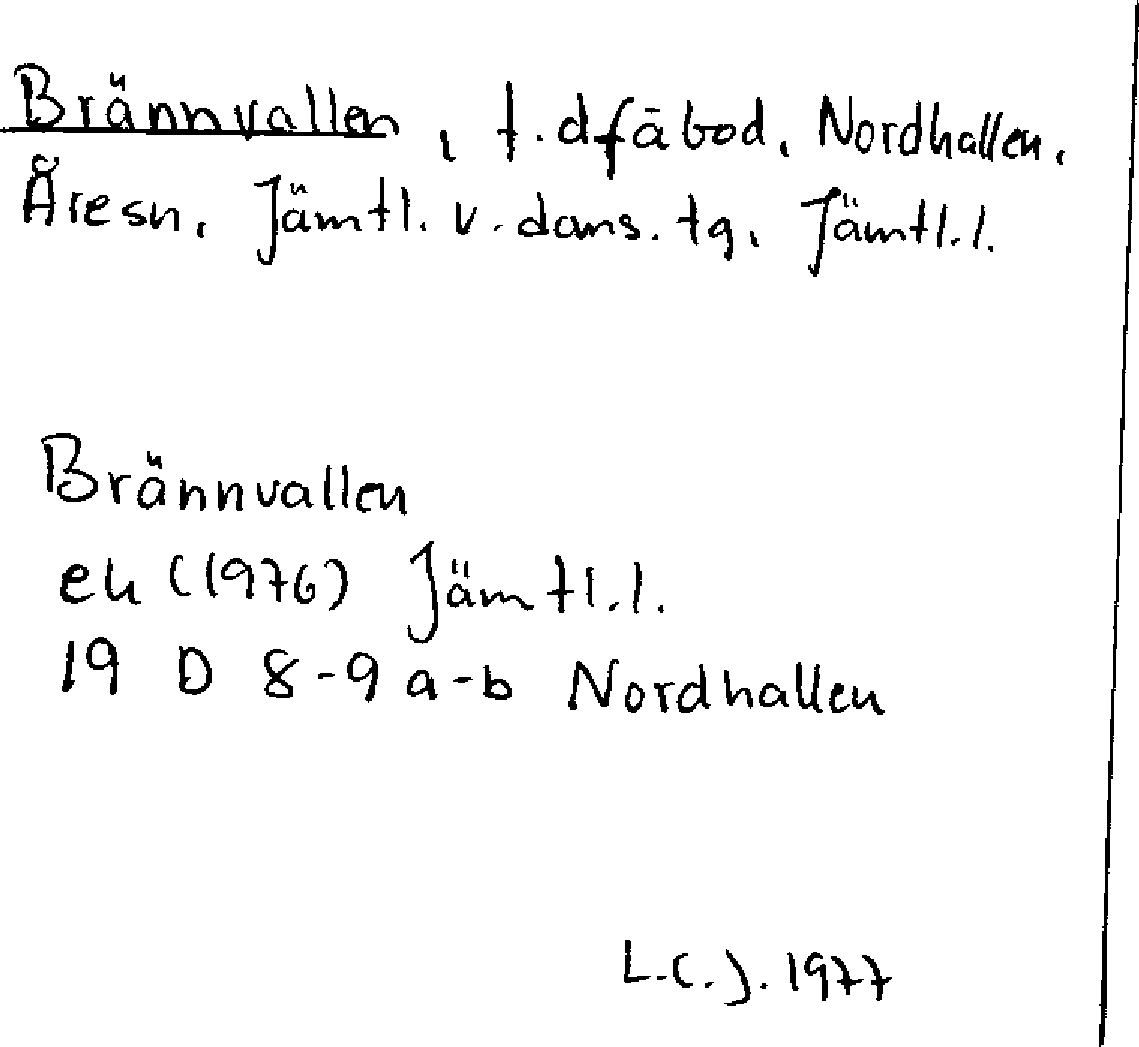 Brännvallen, f.d fäbod, Nordhallen,
Åresn, Jämtl. v. doms. tg, Jämtl.l.
Brännvallen
ek (1976) Jämtl.l.
19 D 8-9 a-b Nordhallen
L.C.J. 1977